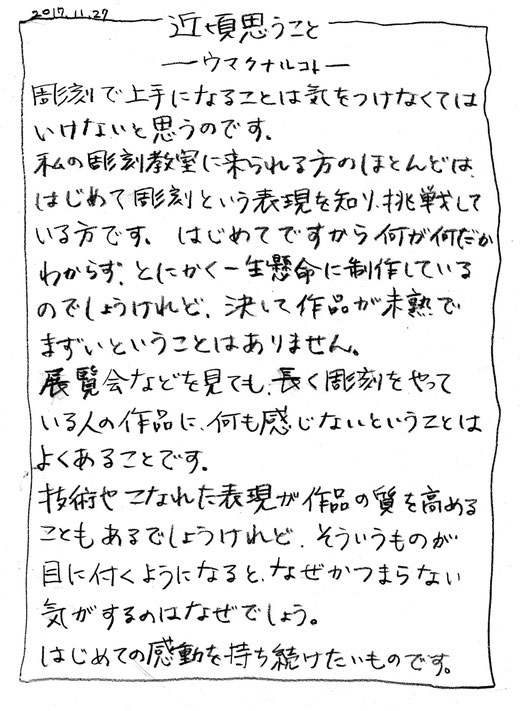 2017.11.27
近頃思うこと
―ウマクナルコト―
彫刻で上手になることは気をつけなくては
いけないと思うのです.
私の彫刻教室に来られる方のほとんどは、
はじめて彫刻という表現を知り、挑戦して
いる方です. はじめてですから何が何だか
わからず、とにかく一生懸命に制作している
のでしょうけれど、決して作品が未熟で
まずいということはありません。
展覧会などを見ても、長く彫刻をやって
いる人の作品に、何も感じないということは
よくあることです。
技術やこなれた表現が作品の質を高める
こともあるでしょうけれど、そういうものが
目に付くようになると、なぜかつまらない
気がするのはなぜでしょう。
はじめての感動を持ち続けたいものです。